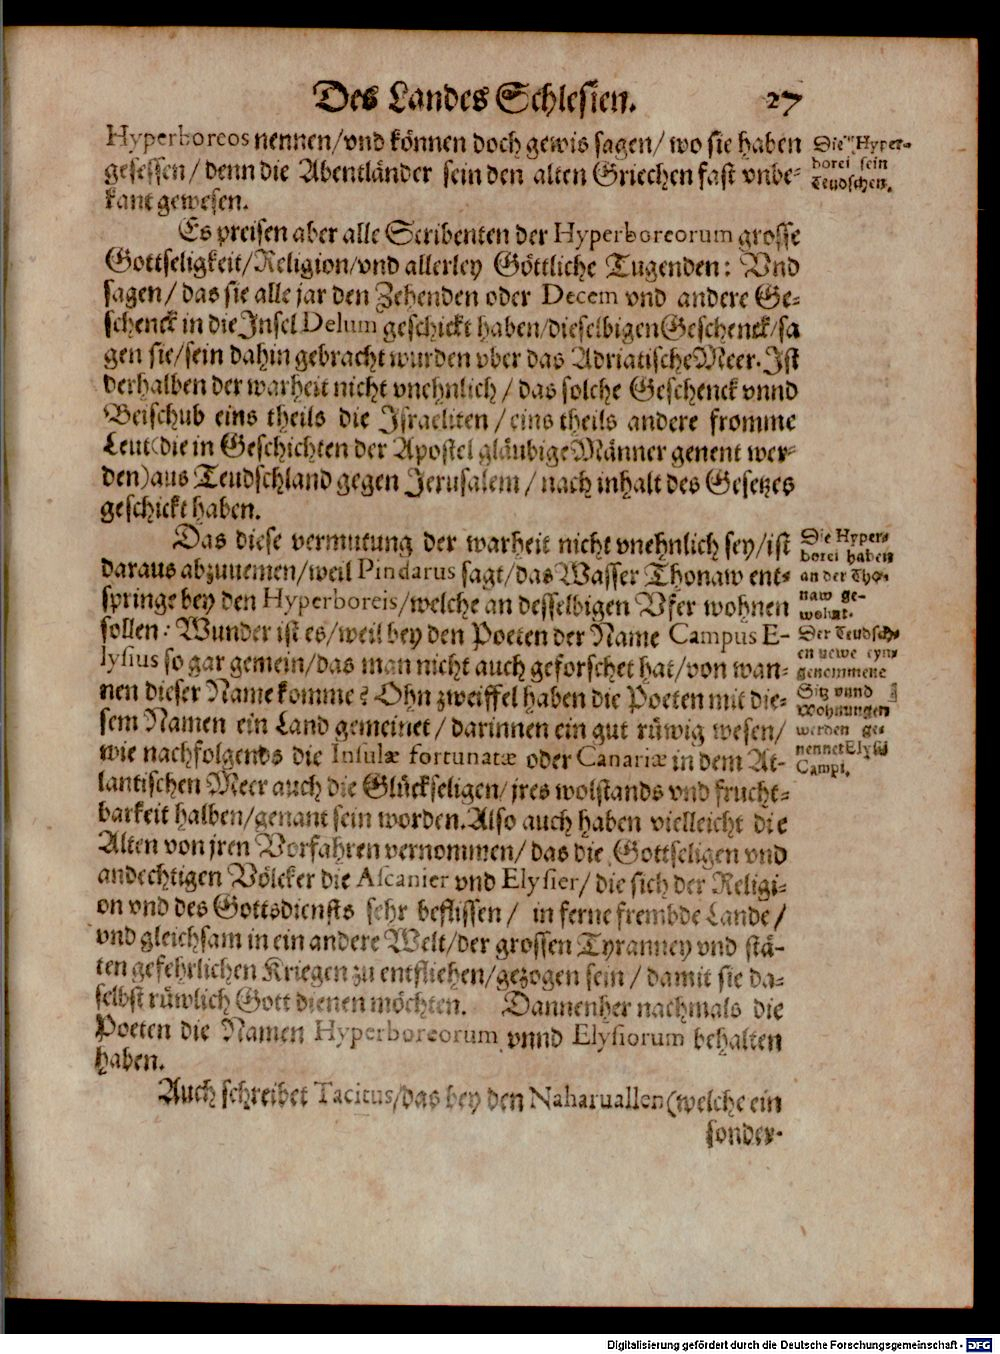 Des Landes Schlesien. 27
Hyperboreos nennen/vnd können doch gewis sagen/ wo sie haben
gesessen/ denn die Abentländer sein den alten Griechen fast vnbe-
kant gewesen.
Die Hyper-
borei sein
Teudschen.
Es preisen aber alle Scribenten der Hyperboreorum grosse
Gottseligkeit/Religion/vnd allerley Göttliche Tugenden: Vnd
sagen/ das sie alle jar den Zehenden oder Decem vnd andere Ge-
schenck in die Insel Delum geschickt haben/dieselbigen Geschenck/sa
gen sie/sein dahin gebracht wurden vber das Adriatische Meer. Ist
derhalben der warheit nicht vnehnlich/ das solche Geschenck vnnd
Beischub eins theils die Israeliten/ eins theils andere fromme
Leut(die in Geschichten der Apostel gläubige Männer genent wer-
den)aus Teudschland gegen Jerusalem/ nach inhalt des Gesetzes
geschickt haben.
Das diese vermutung der warheit nicht vnehnlich sey/ist
daraus abzunemen/weil Pindarus sagt/das Wasser Thonaw ent-
springe bey den Hyperboreis/welche an desselbigen Vfer wohnen
sollen: Wunder ist es/weil bey den Poeten der Name Campus E-
lysius so gar gemein/das man nicht auch geforschet hat/von wan-
nen dieser Name komme? Ohn zweiffel haben die Poeten mit die-
sem Namen ein Land gemeinet/ darinnen ein gut rüwig wesen/
wie nachfolgends die Insulæ fortunatæ oder Canariæ in dem At-
lantischen Meer auch die Glückseligen/jres wolstands vnd frucht-
barkeit halben/genant sein worden. Also auch haben vielleicht die
Alten von jren Vorfahren vernommen/ das die Gottseligen vnd
andechtigen Völcker die Ascanier vnd Elysier/ die sich der Religi-
on vnd des Gottsdiensts sehr beflissen/ in ferne frembde Lande/
vnd gleichsam in ein andere Welt/der grossen Tyranney vnd stä-
ten gefehrlichen Kriegen zu entfliehen/gezogen sein/ damit sie da-
selbst rüwlich Gott dienen möchten. Dannenher nachmals die
Poeten die Namen Hyperboreorum vnnd Elysiorum behalten
haben.
Die Hyper-
borei haben
an der Tho-
naw ge-
wohnt.
Der Teudsch-
en newe eyn-
genommene
Sitz vnnd
Wohnungen
werden ge-
nennet Elysii
Campi.
Auch schreibet Tacitus/das bey den Naharuallen(welche ein
sonder-
Digitalisierung gefördert durch die Deutsche Forschungsgemeinschaft - DFG